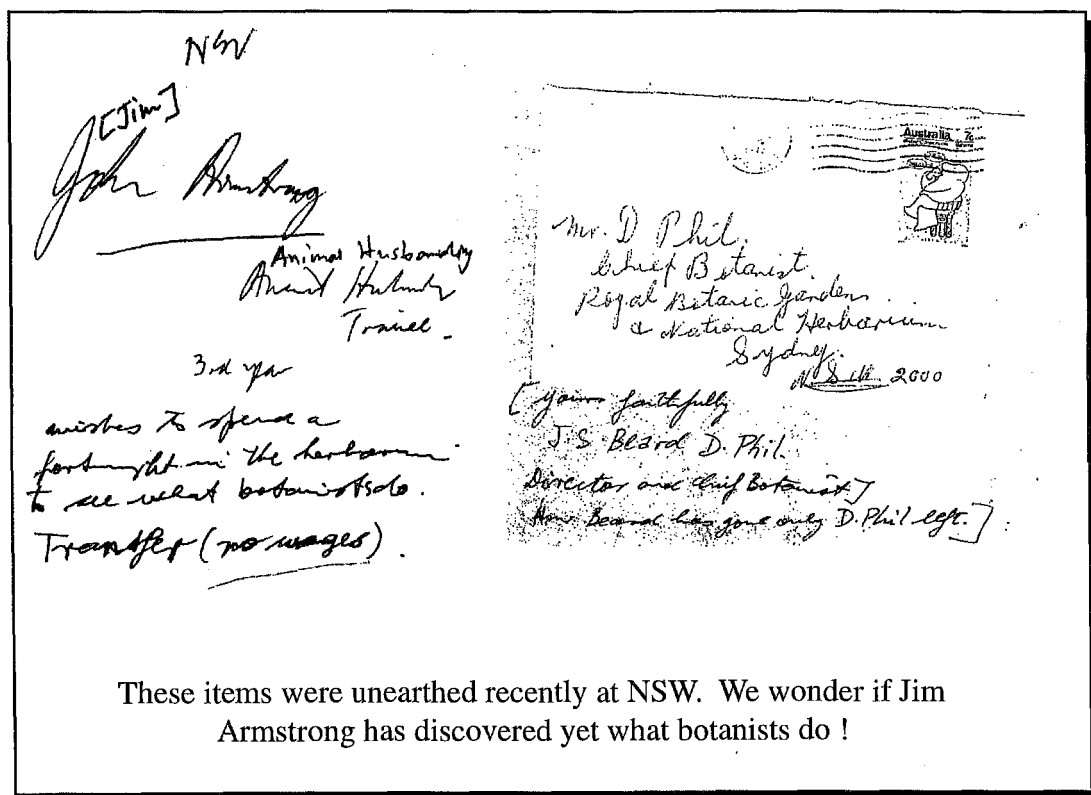 NSW
[Jim]
John Armstrong
Animal Husbandry
Animal Husbandry
Trainee.
3rd year
wishes to spend a
fortnight in the herbarium
to see what botanists do.
Transfer (no wages).
Australia 7c
Mr. D Phil,
Chief Botanist.
Royal Botanic Gardens
& National Herbarium
Sydney.
N.S.W. 2000
[Yours faithfully
J. S. Beard D. Phil.
Director and Chief Botanist.]
Now Beard has gone only D. Phil left.]
These items were unearthed recently at NSW. We wonder if Jim
Armstrong has discovered yet what botanists do !